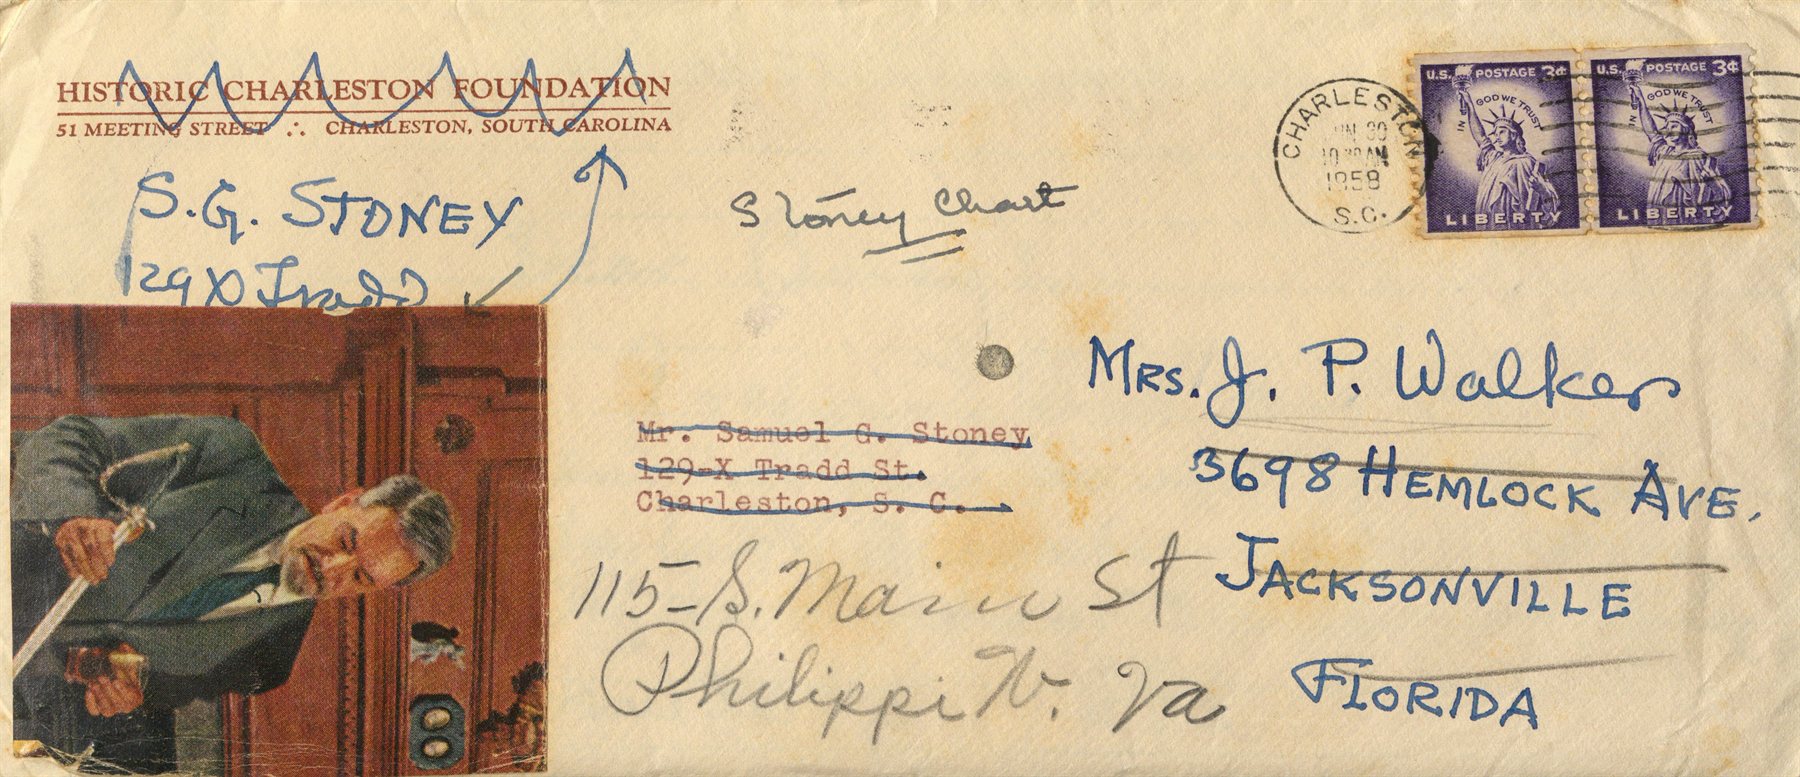 HISTORIC CHARLESTON FOUNDATION
51 MEETING STREET ∴ CHARLESTON, SOUTH CAROLINA
S.G. STONEY
129X Tradd
Stoney Chart
CHARLESTON
30
10 30 AM
1958
S.C.
U.S. POSTAGE 3¢
IN GOD WE TRUST
LIBERTY
U.S. POSTAGE 3¢
IN GOD WE TRUST
LIBERTY
Mr. Samuel G. Stoney
129-X Tradd St.
Charleston, S. C.
MRS. J. P. Walker
3698 HEMLOCK AVE.
JACKSONVILLE
FLORIDA
115-S. Main St
Philippi W. Va